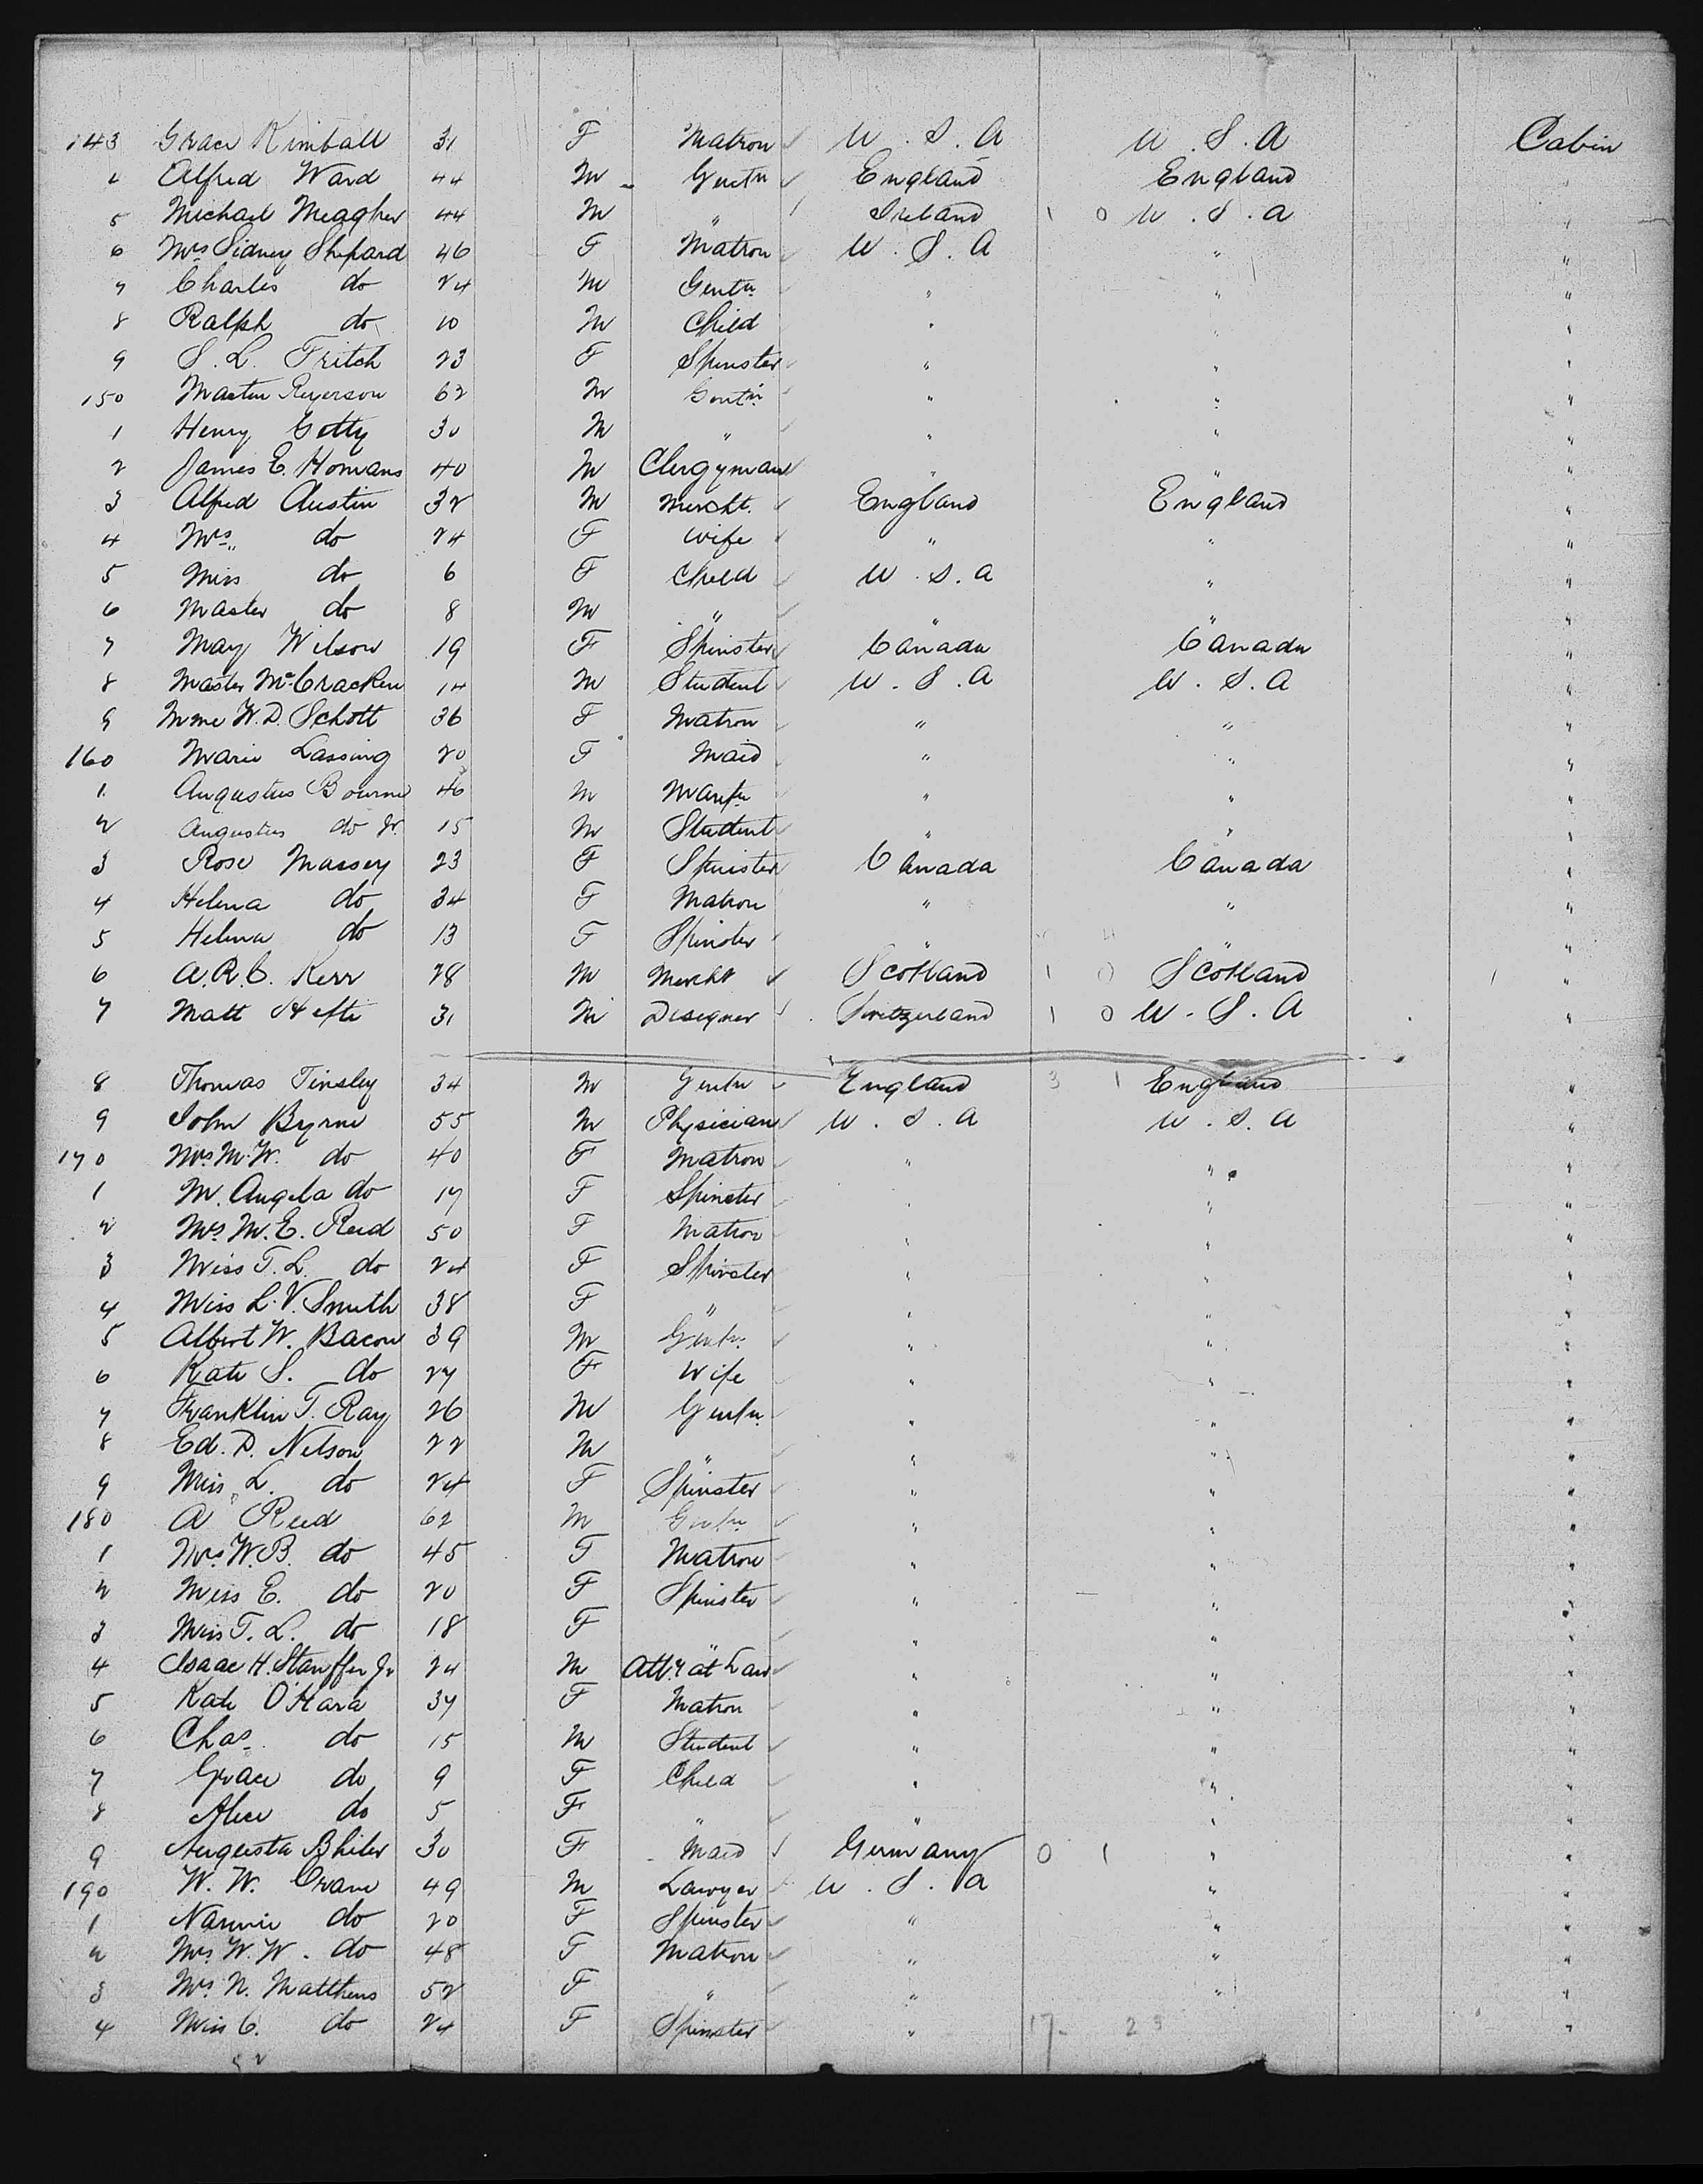 143 Grace Kimball 31 F Matron U.S.A U.S.A Cabin
4 Alfred Ward 44 M Gentn England England "
5 Michael Meagher 44 M " Ireland 1 0 U.S.A "
6 Mrs Sidney Shepard 46 F Matron U.S.A " "
7 Charles do 24 M Gentn " " "
8 Ralph do 10 M Child " " "
9 S.L. Fritch 23 F Spinster " " "
150 Martin Ryerson 62 M Gentn " " "
1 Henry Getty 30 M " " " "
2 James E. Homans 40 M Clergyman " " "
3 Alfred Austin 32 M Mercht. England England "
4 Mrs " do 24 F Wife " " "
5 Miss do 6 F Child U.S.A " "
6 Master do 8 M " " " "
7 May Wilson 19 F Spinster Canada Canada "
8 Master McCracken 14 M Student U.S.A U.S.A "
9 Mme W.D. Schott 36 F Matron " " "
160 Marie Lassing 20 F Maid " " "
1 Augustus Bourne 46 M Manfr " " "
2 Augustus do Jr. 15 M Student " " "
3 Rose Massey 23 F Spinster Canada Canada "
4 Helena do 34 F Matron " " "
5 Helena do 13 F Spinster " " "
6 A.R.C. Kerr 28 M Mercht Scotland 1 0 Scotland "
7 Matt Hefti 31 M Disegner Switzerland 1 0 U.S.A "
8 Thomas Tinsley 34 M Gentn England 3 1 England "
9 John Byrne 55 M Physician U.S.A U.S.A "
170 Mrs M.W. do 40 F Matron " " "
1 M. Angela do 17 F Spinster " " "
2 Mrs M.E. Reid 50 F Matron " " "
3 Miss T.L. do 24 F Spinster " " "
4 Miss L.V. Smith 38 F " " " "
5 Albert W. Bacon 39 M Gentn. " " "
6 Kate S. do 27 F Wife " " "
7 Franklin T. Ray 26 M Gentn. " " "
8 Ed. D. Nelson 22 M " " " "
9 Miss L. do 24 F Spinster " " "
180 A Reed 62 M Gentn " " "
1 Mrs W.B. do 45 F Matron " " "
2 Miss E. do 20 F Spinster " " "
3 Miss T.L. do 18 F " " " "
4 Isaac H. Stauffer Jr 24 M Atty at Law " " "
5 Kate O'Hara 37 F Matron " " "
6 Chas. do 15 M Student " " "
7 Grace do 9 F Child " " "
8 Alice do 5 F " " " "
9 Augusta 30 F Maid Germany 0 1 " "
190 W.W. Crane 49 M Lawyer U.S.A " "
1 Nannie do 20 F Spinster " " "
2 Mrs W.W. do 48 F Matron " " "
3 Mrs N. Matthews 52 F " " " "
4 Miss C. do 24 F Spinster " 17 23 "